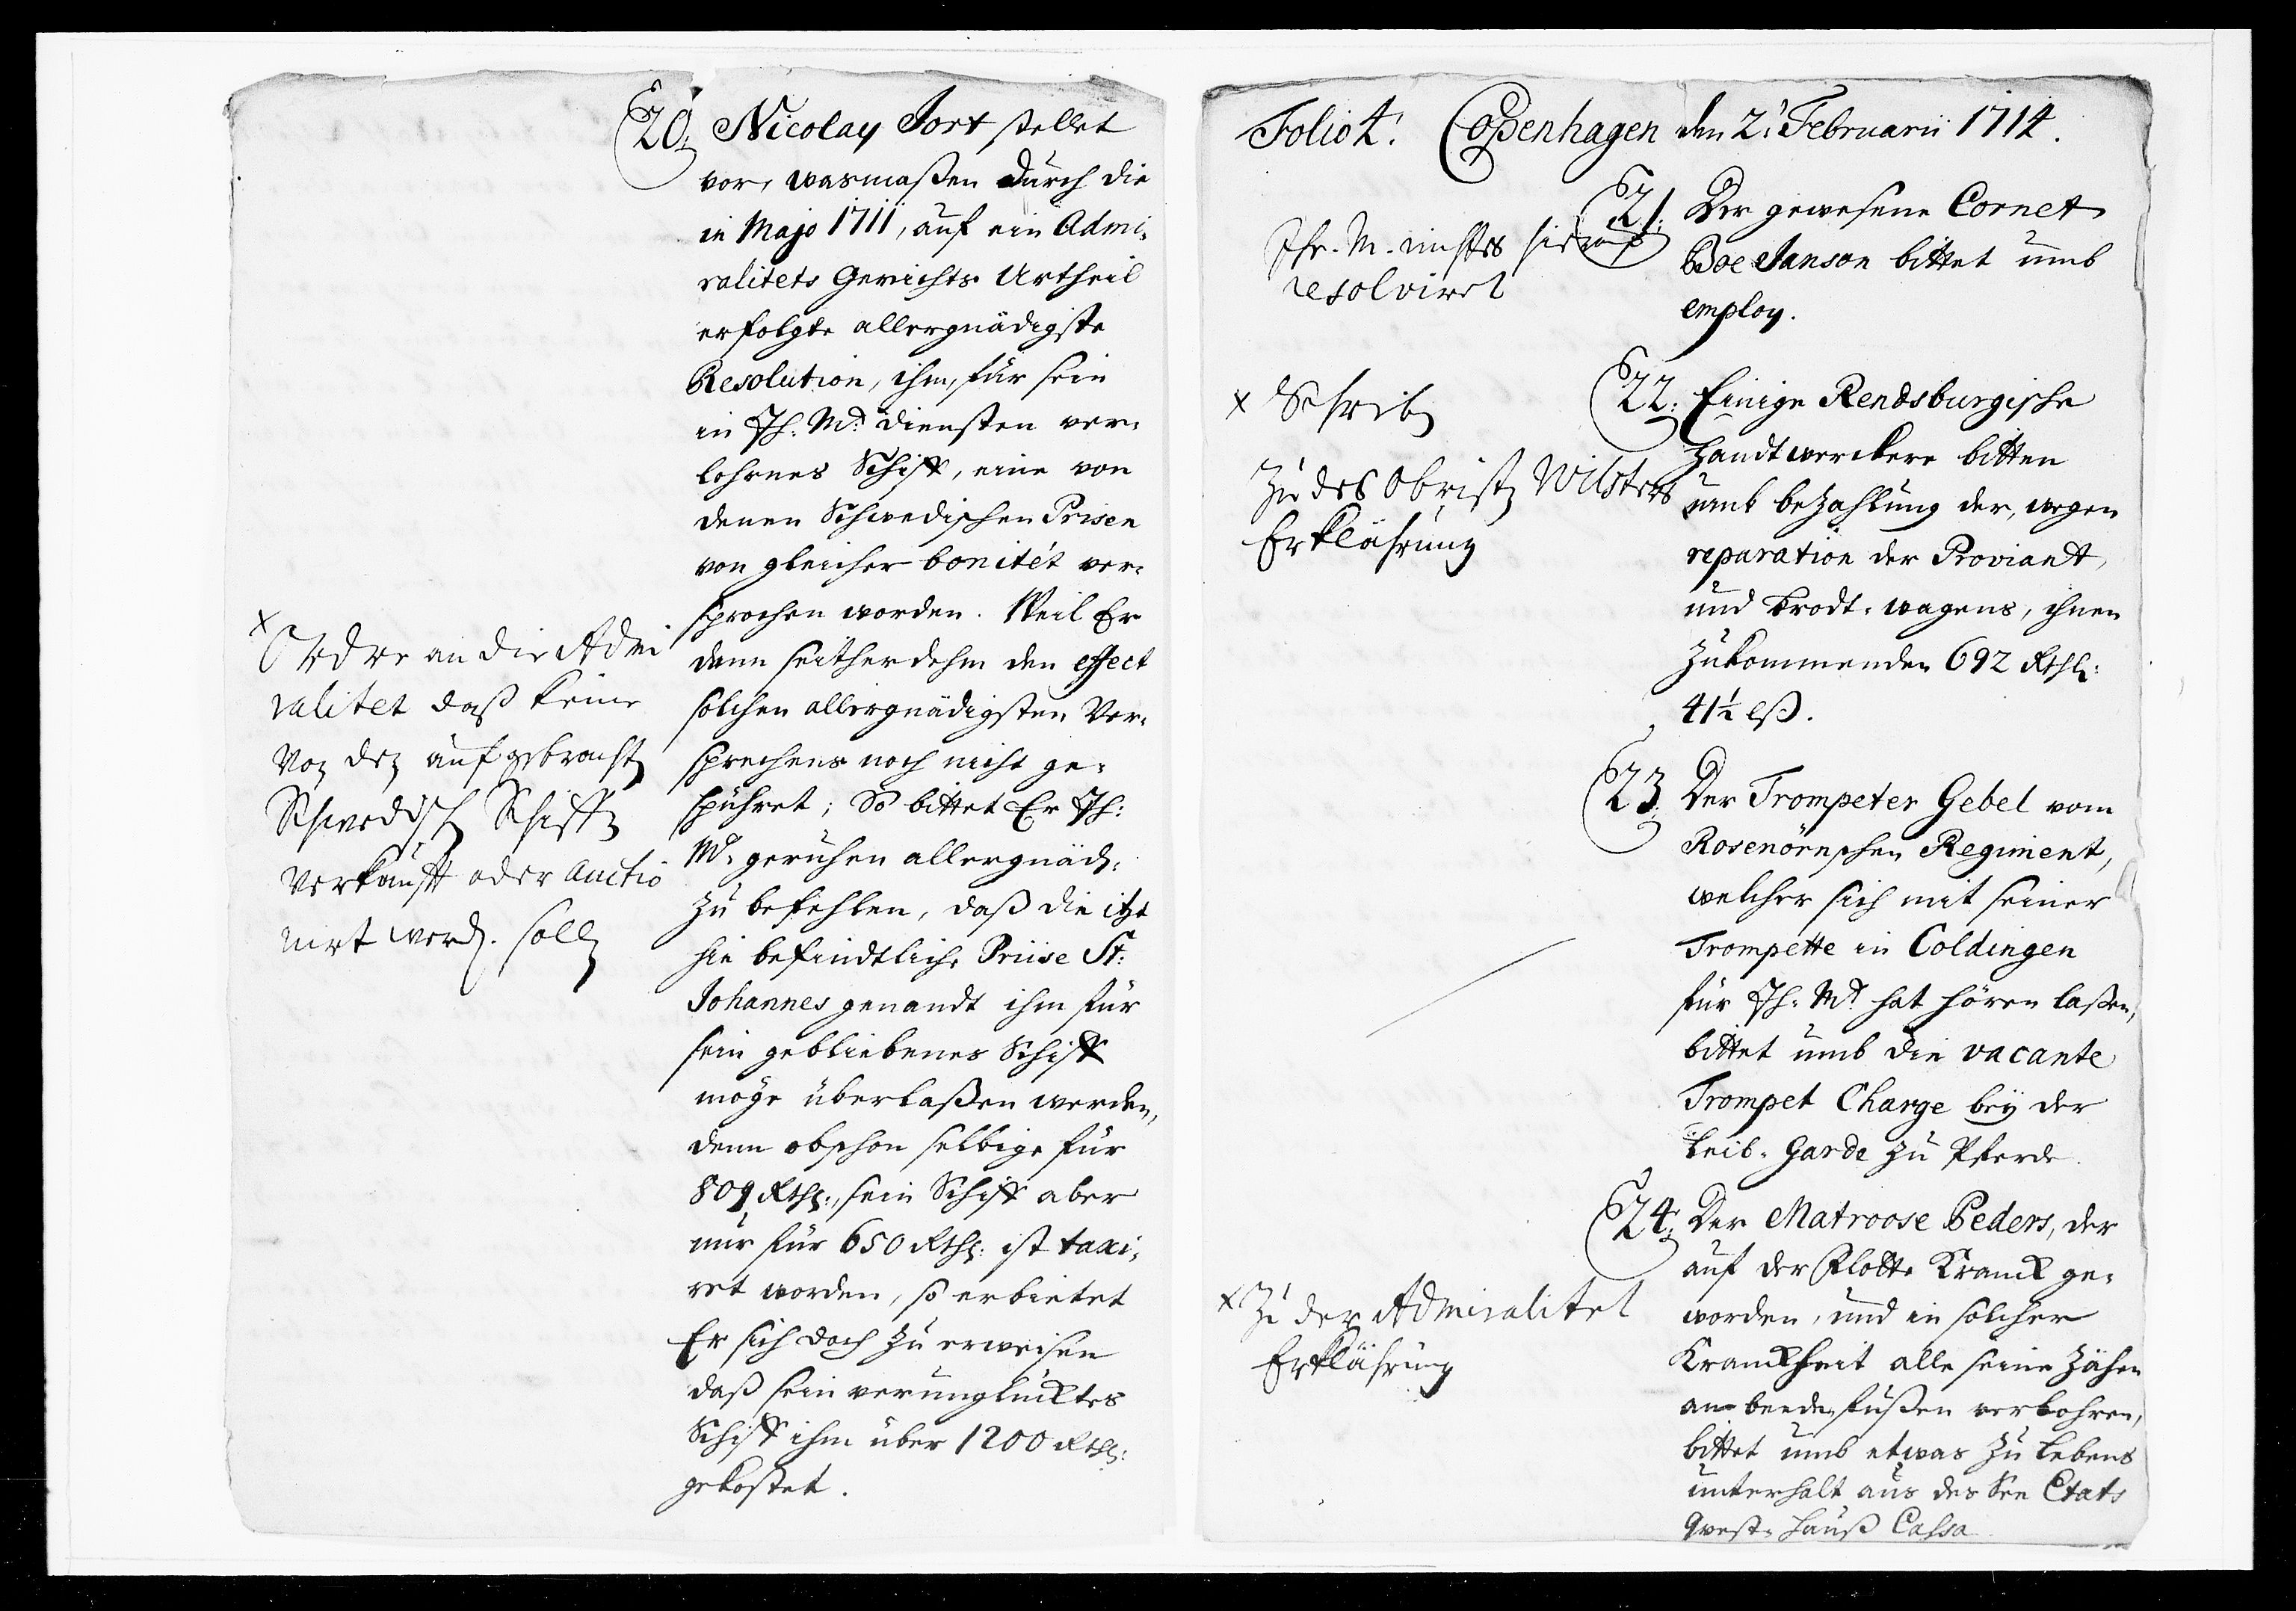 20. Nicolay Jort stellet
vor, wasmaßen durch die
in Majo 1711, auf ein Admi-
ralitets Gerichts Urtheil
erfolgte allergnädigste
Resolution, ihm, für sein
in Ih: Mt: Diensten ver-
lohrnes Schiff, eine von
denen Schwedischen Prisen
von gleicher bonitét ver-
sprochen worden. Weil Er
denn seitherdehm den effect
solchen allergnädigsten Ver-
sprechens noch nicht ge-
spühret; So bittet Er Ih:
Mt. geruhen allergnäd:
zu befehlen, daß die itzt
hie befindtliche Priise St:
Johannes genandt ihm für
sein gebliebenes Schiff
möge überlaßen werden,
denn obschon selbige für
809 Rthl:, sein Schiff aber
nur für 650 Rthl: ist taxi-
ret worden, so erbietet
Er sich doch zu erweisen
daß sein verunglücktes
Schiff ihm über 1200 Rthl:
gekostet.
x
Ordre an die Admi
ralitet daß keine
von den aufgebrachten
Schwedischen Schiffen
verkaufft oder auctio
nirt werd. sollen
Folio 4. Copenhagen den 2. Februarii 1714.
21. Der gewesene Cornet
Boe Janson bittet umb
employ.
Ihr. M. nichtes hierauf
resolviret
22. Einige Rendsburgische
Handtwerckere bitten
umb bezahlung der, wegen
reparation der Proviant,
und Brodt-wagens, ihnen
zukommenden 692 Rthl:
41½ lß.
x Schreiben
Zu des Obristen Wilsters
Erklährung
23. Der Trompeter Gebel vom
Rosenörnschen Regiment,
welcher sich mit seiner
Trompette in Coldingen
für Ih: Mt. hat hören laßen,
bittet umb die vacante
Trompet Charge beÿ der
Leib-Garde zu Pferde.
24. Der Matroose Peders, der
auf der Flotte Kranck ge-
worden, und in solcher
Kranckheit alle seine Zähen
an beeden füßen verlohren,
bittet umb etwas zu Lebens
unterhalt aus des See Etats
Qvest-Hauß Cassa.
x Zu der Admiralitet
Erklährung